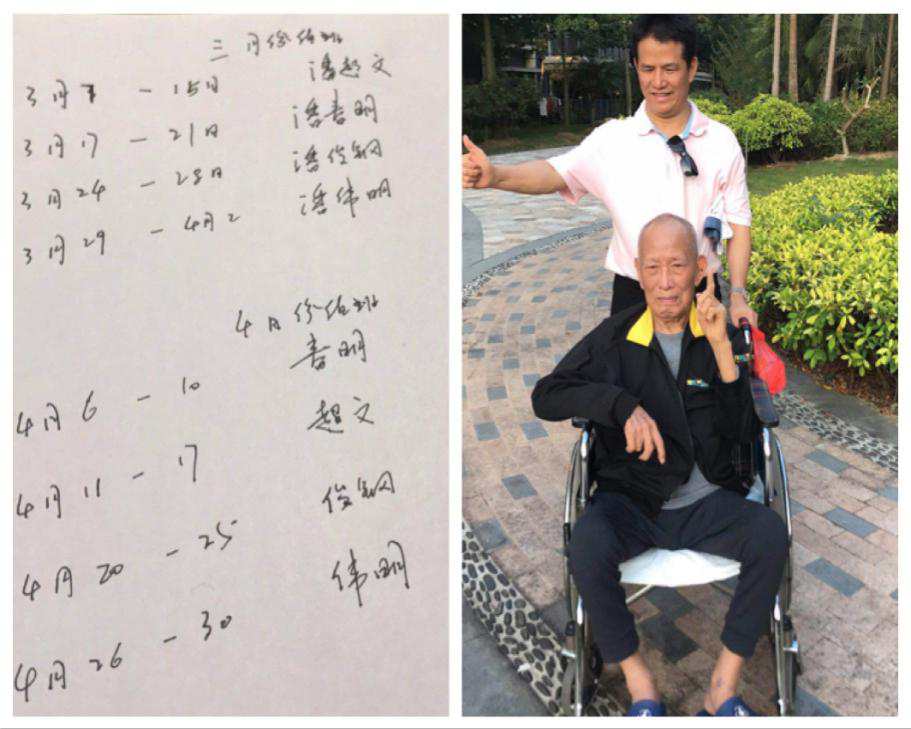 三月份值班
3月7 - 15日 潘超文
3月17 - 21日 潘春明
3月24 - 28日 潘俊钢
3月29 - 4月2 潘伟明
4月份值班
4月6 - 10 春明
4月11 - 17 超文
4月20 - 25 俊钢
4月26 - 30 伟明